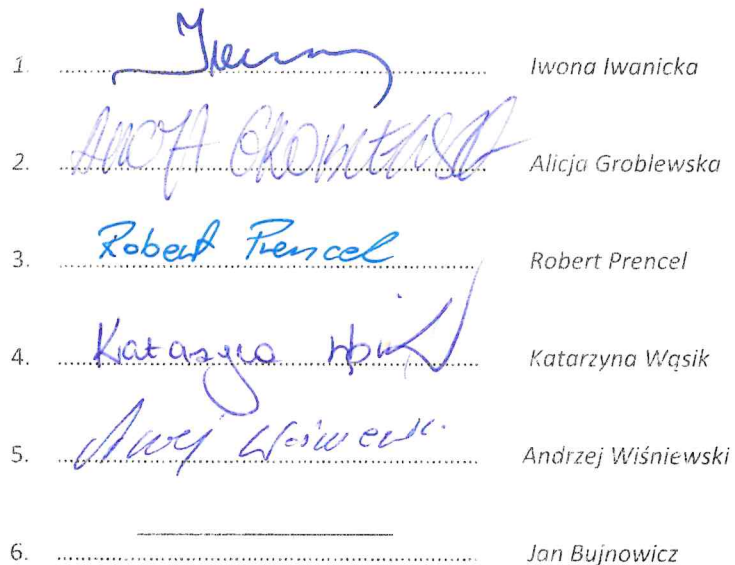 1. Iwona Iwanicka
2. ALICJA GROBLEWSKA Alicja Groblewska
3. Robert Prencel Robert Prencel
4. Katarzyna Katarzyna Wąsik
5. Andrzej Wiśniewski
6. Jan Bujnowicz